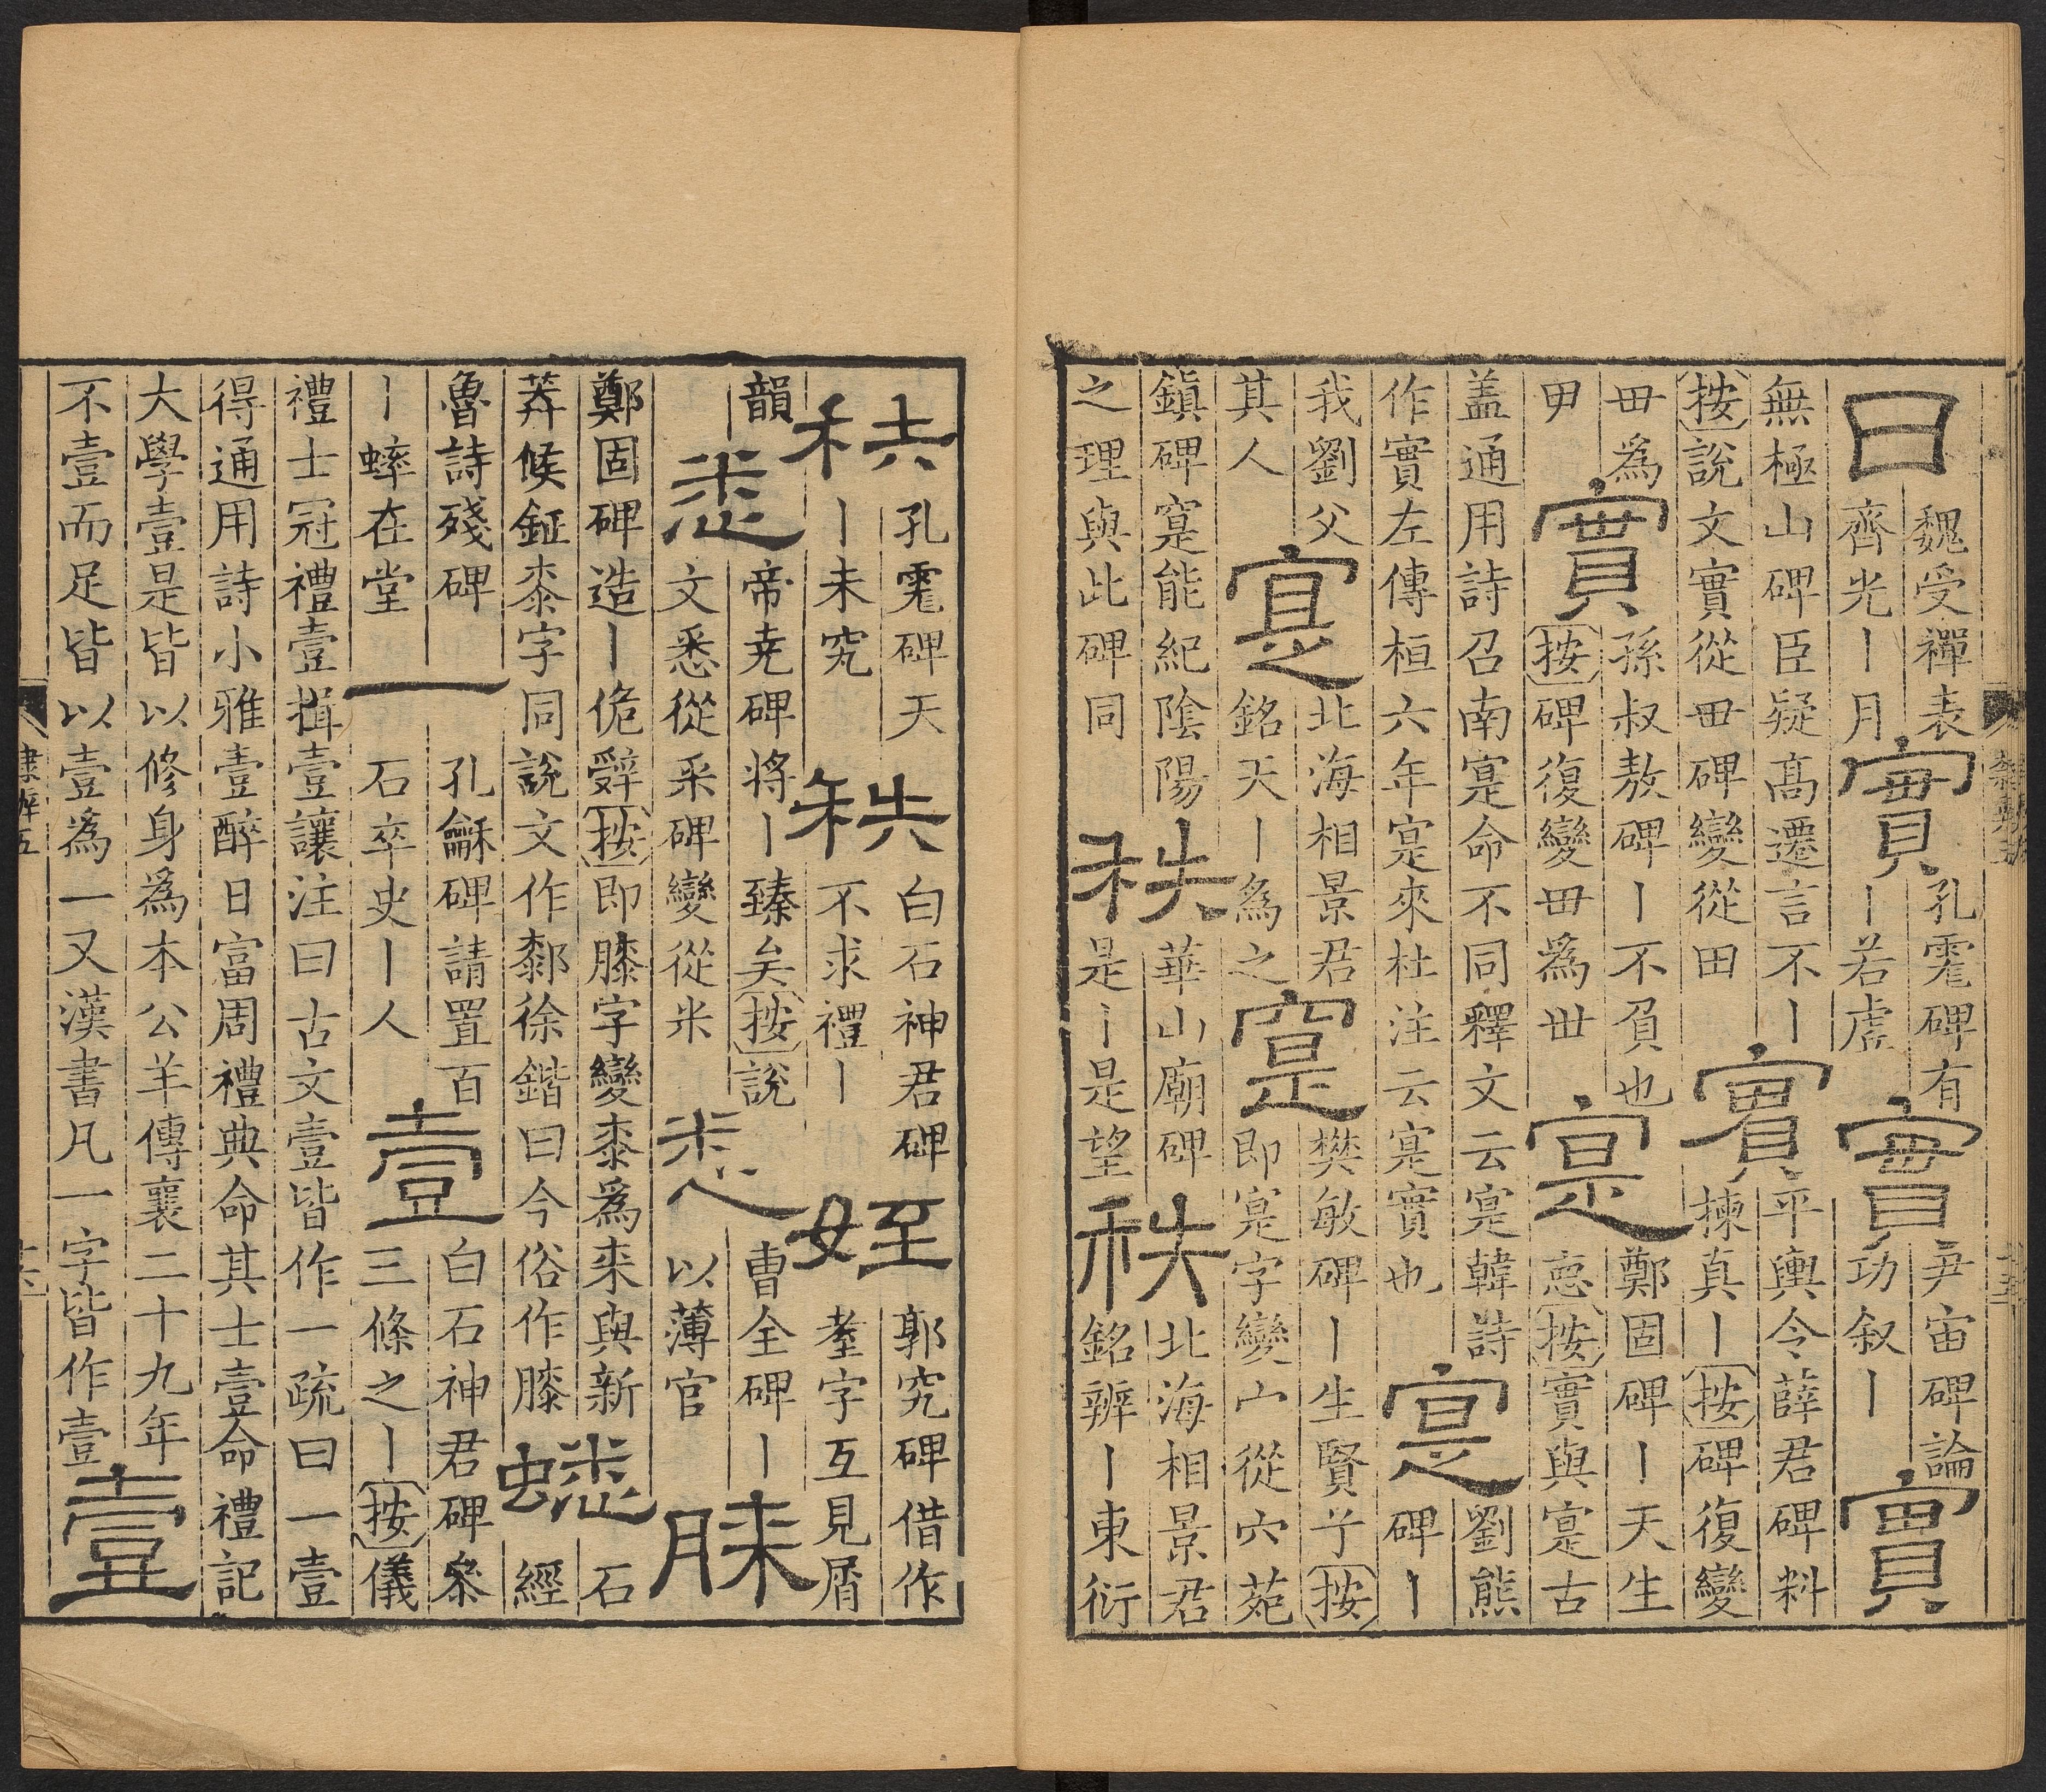 日
魏受禪表
齊光丨月
實
孔彪碑有
丨若虛
實
尹宙碑論
功叙丨
實
無極山碑臣疑高遷言不丨
按說文實從毌碑變從田
實
平輿令薛君碑料
揀真丨按碑復變
毌為
甲
實
孫叔敖碑丨不負也
按碑復變毌為世
寔
鄭固碑丨天生
悳按實與寔古
盖通用詩召南寔命不同釋文云寔韓詩
作實左傳桓六年寔來杜注云寔實也
寔
劉熊
碑丨
我劉父
其人
寔
北海相景君
銘天丨為之
寔
樊敏碑丨生賢子按
即寔字變宀從穴苑
鎮碑寔能紀陰陽
之理與此碑同
秩
華山廟碑
是丨是望
秩
北海相景君
銘辨丨東衍
秩
孔彪碑天
丨未究
秩
白石神君碑
不求禮丨
姪
郭究碑借作
耋字互見屑
韻
悉
帝尭碑將丨臻矣按說
文悉從釆碑變從米
悉
曹全碑丨
以薄官
膝
鄭固碑造丨佹辤按即膝字變桼為来與新
莽候鉦桼字同說文作厀徐鍇曰今俗作膝
蟋
石
經
魯詩殘碑
丨蟀在堂
一
孔龢碑請置百
石卒史丨人
壹
白石神君碑叅
三條之丨按儀
禮士冠禮壹揖壹讓注曰古文壹皆作一疏曰一壹
得通用詩小雅壹醉日富周禮典命其士壹命禮記
大學壹是皆以修身為本公羊傳襄二十九年
不壹而足皆以壹為一又漢書凡一字皆作壹
壹